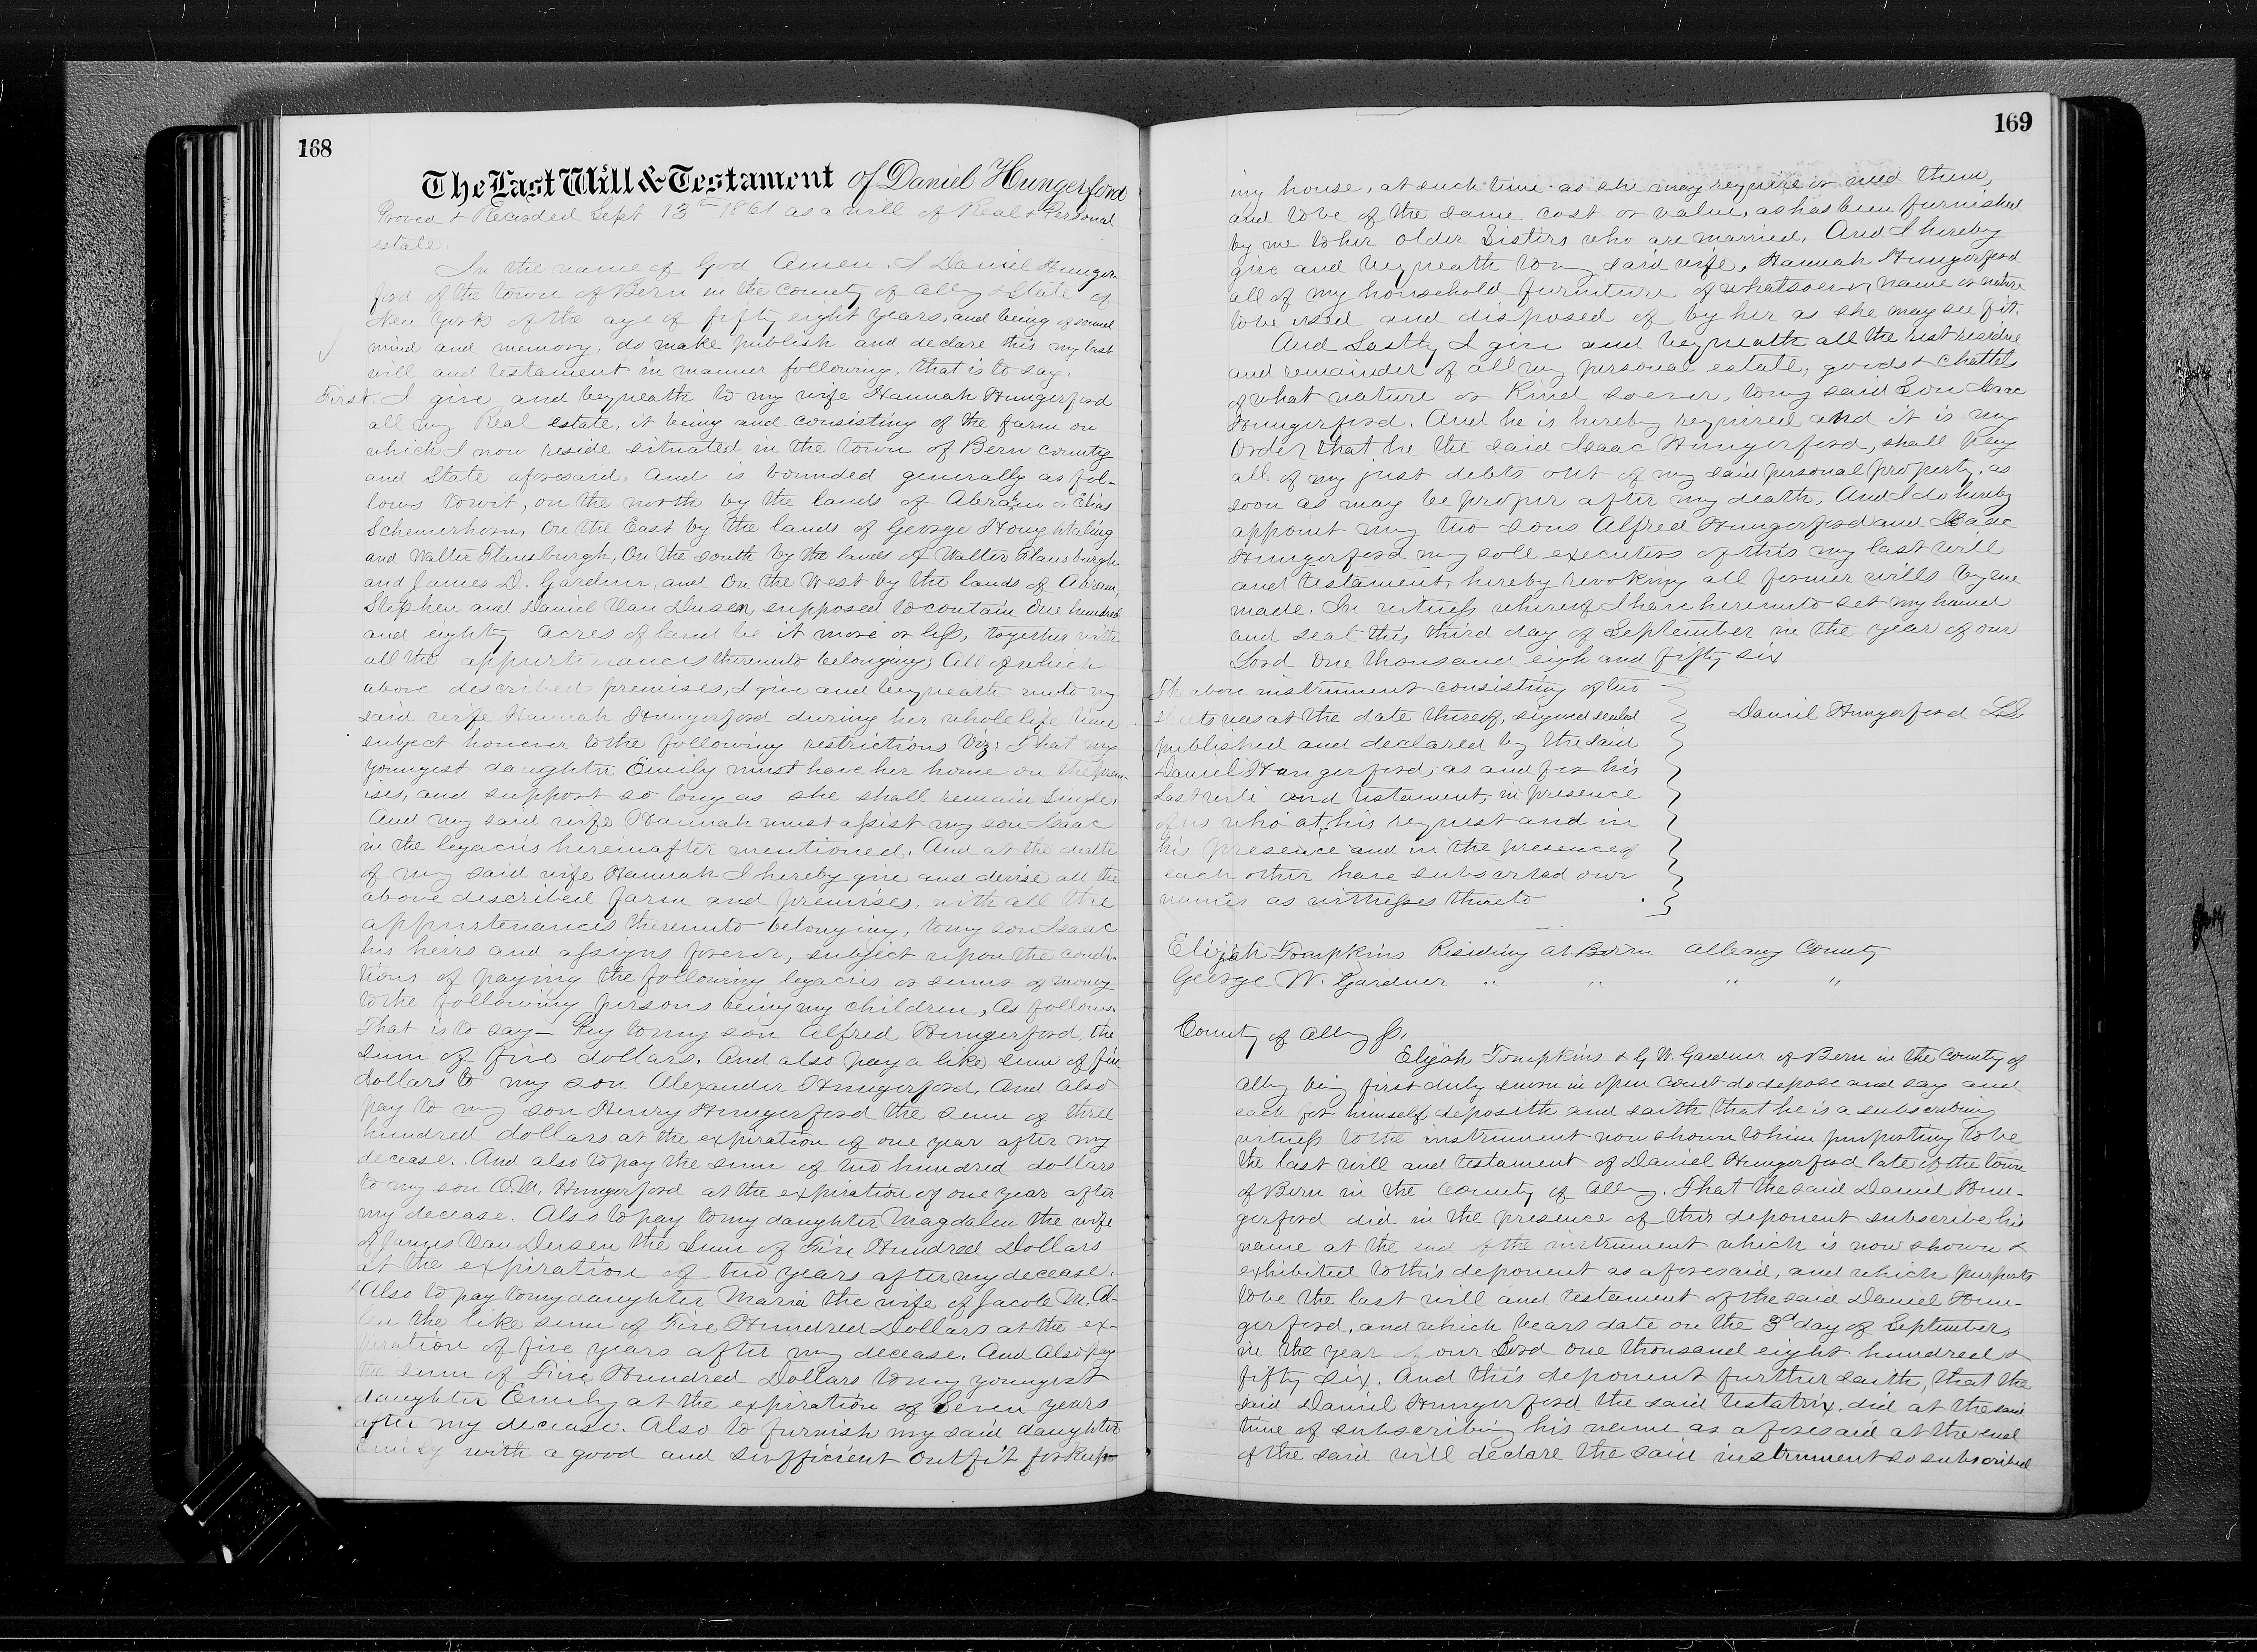 168
The Last Will & Testament of Daniel Hungerford
Proved & Recorded Sept 13th 1861 as a will of Real & Personal
estate.
In the name of God Amen. I Daniel Hunger-
ford of the town of Bern in the County of Alby & State of
New York of the age of fifty eight years, and being of sound
mind and memory, do make publish and declare this my last
will and testament in manner following, that is to say.
First. I give and bequeath to my wife Hannah Hungerford
all my Real estate, it being and consisting of the farm on
which I now reside situated in the town of Bern county
and State aforesaid, and is bounded generally as fol-
lows towit, on the north by the lands of Abram or Elias
Schemerhorn, On the East by the lands of George Houghtaling
and Walter Flansburgh, On the south by the lands of Walter Flansburgh
and James D. Gardner, and On the West by the lands of Abram,
Stephen and Daniel Van Dusen, supposed to contain One hundred
and eighty acres of land be it more or less, together with
all the appurtenances thereunto belonging; All of which
above described premises, I give and bequeath unto my
said wife Hannah Hungerford during her whole life time
subject however to the following restrictions Viz: That my
youngest daughter Emily must have her home on the prem-
ises, and support so long as she shall remain Single,
And my said wife Hannah must assist my son Isaac
in the legacies hereinafter mentioned. And at the death
of my said wife Hannah I hereby give and devise all the
above described farm and premises, with all the
appurtenances thereunto belonging, to my son Isaac
his heirs and assigns forever, subject upon the condi-
tions of paying the following legacies or sums of money
to the following persons being my children, As follows.
That is to say— Pay to my son Alfred Hungerford, the
sum of five dollars. And also pay a like sum of five
dollars to my son Alexander Hungerford. And also
pay to my son Henry Hungerford the sum of three
hundred dollars at the expiration of one year after my
decease. And also to pay the sum of two hundred dollars
to my son O.M. Hungerford at the expiration of one year after
my decease. Also to pay to my daughter Magdalen the wife
of James Van Dusen the Sum of Five Hundred Dollars
at the expiration of two years after my decease.
Also to pay to my daughter Maria the wife of Jacob M.
the like sum of Five Hundred Dollars at the ex-
piration of five years after my decease. And Also pay
the sum of Five Hundred Dollars to my youngest
daughter Emily at the expiration of Seven years
after my decease. Also to furnish my said daughter
Emily with a good and sufficient outfit for Keep
169
my house, at such time as she may require or need them,
and to be of the same cost or value, as has been furnished
by me to her older Sisters who are married. And I hereby
give and bequeath to my said wife, Hannah Hungerford
all of my household furniture of whatsoever name or nature
to be used and disposed of by her as she may see fit.
And Lastly I give and bequeath all the rest residue
and remainder of all my personal estate, goods & chattels
of what nature or Kind soever, to my said Son Isaac
Hungerford. And he is hereby required and it is my
Order that he the said Isaac Hungerford, shall pay
all of my just debts out of my said personal property, as
soon as may be proper after my death. And I do hereby
appoint my two sons Alfred Hungerford and Isaac
Hungerford my sole executors of this my last will
and testament, hereby revoking all former wills by me
made. In witness whereof I have hereunto set my hand
and seal this third day of September in the year of our
Lord One thousand eigh and fifty six
The above instrument consisting of two
sheets was at the date thereof, signed sealed
published and declared by the said
Daniel Hungerford, as and for his
Last will and testament, in presence
of us who at his request and in
his presence and in the presence of
each other have subscribed our
names as witnesses thereto
Daniel Hungerford LS
Elijah Tompkins Residing at Bern Albany County
George W. Gardner " " " "
County of Alby ss.
Elijah Tompkins & G W. Gardner of Bern in the County of
Alby being first duly sworn in open Court do depose and say and
each for himself deposith and saith that he is a subscribing
witness to the instrument now shown to him purporting to be
the last will and testament of Daniel Hungerford late of the town
of Bern in the County of Alby. That the said Daniel Hun-
gerford did in the presence of this deponent subscribe his
name at the end of the instrument which is now shown &
exhibited to this deponent as aforesaid, and which purports
to be the last will and testament of the said Daniel Hun-
gerford, and which bears date on the 3d day of September
in the year of our Lord one thousand eight hundred &
fifty six. And this deponent further saith, that the
said Daniel Hungerford the said testatrix, did at the said
time of subscribing his name as aforesaid at the end
of the said will declare the said instrument so subscribed